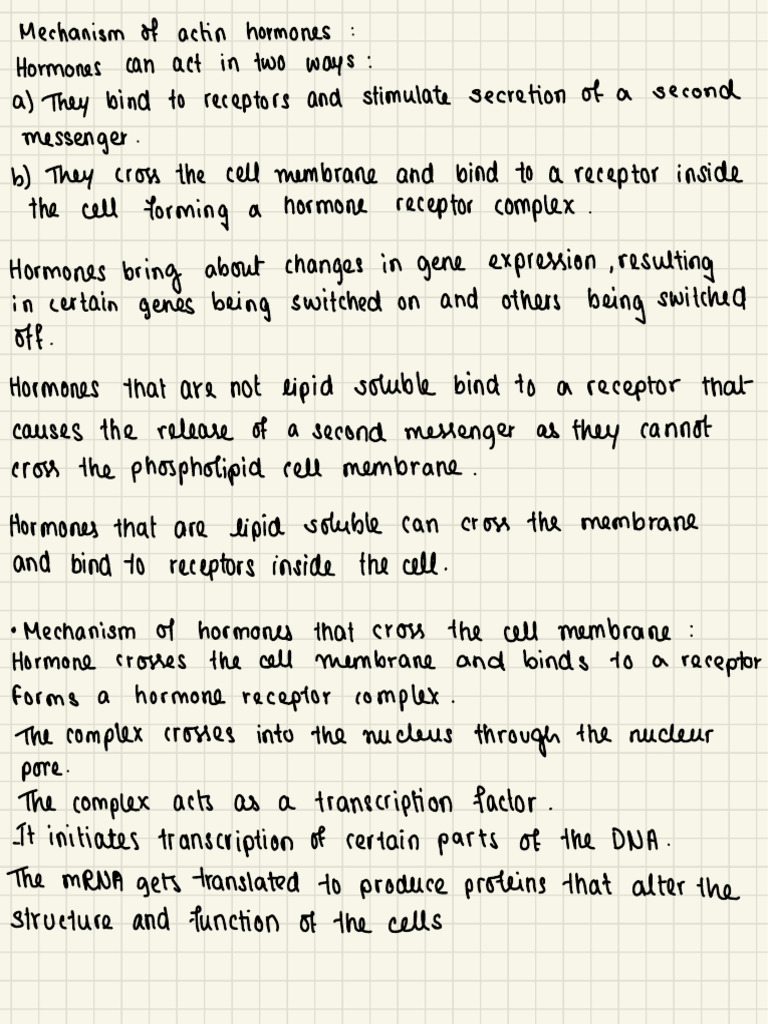 Mechanism of actin hormones :
Hormones can act in two ways :
a) They bind to receptors and stimulate secretion of a second
messenger.
b) They cross the cell membrane and bind to a receptor inside
the cell forming a hormone receptor complex.
Hormones bring about changes in gene expression, resulting
in certain genes being switched on and others being switched
off.
Hormones that are not lipid soluble bind to a receptor that
causes the release of a second messenger as they cannot
cross the phospholipid cell membrane.
Hormones that are lipid soluble can cross the membrane
and bind to receptors inside the cell.
• Mechanism of hormones that cross the cell membrane :
Hormone crosses the cell membrane and binds to a receptor
forms a hormone receptor complex.
The complex crosses into the nucleus through the nucleur
pore.
The complex acts as a transcription factor.
It initiates transcription of certain parts of the DNA.
The mRNA gets translated to produce proteins that alter the
structure and function of the cells